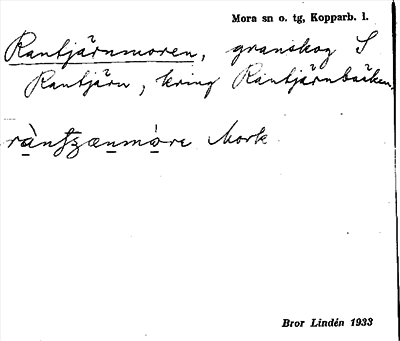 Mora sn o. tg, Kopparb. l.
Rantjärnmoren, granskog S
Rantjärn, kring Rantjärnbäcken.
Mork
Bror Lindén 1933